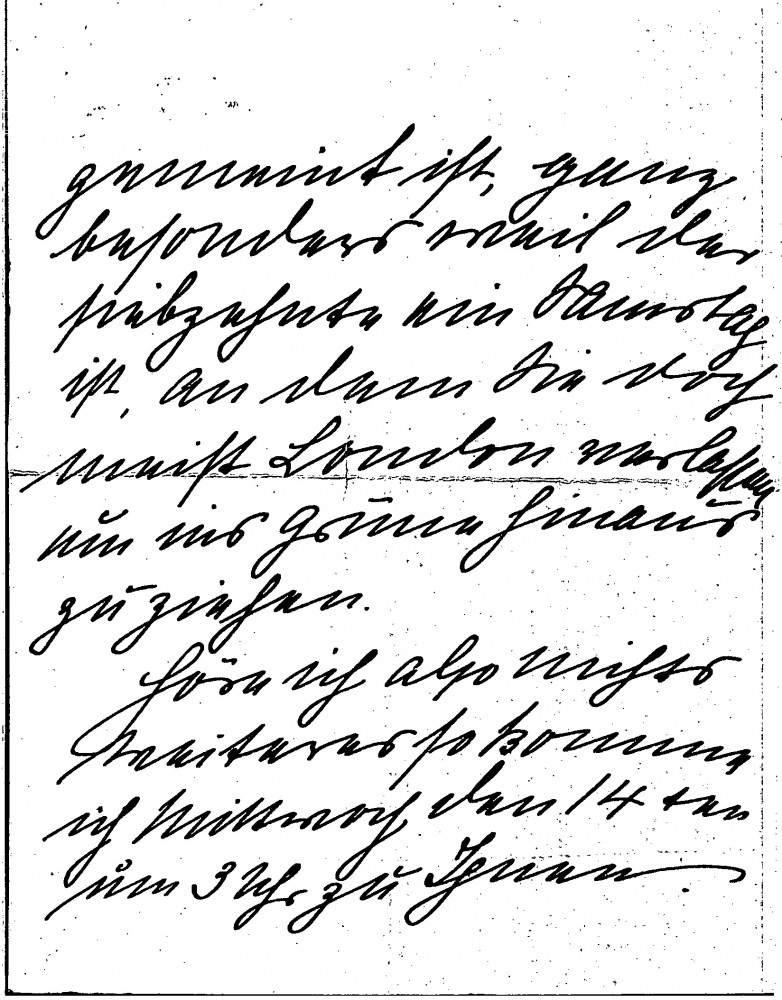 gemeint ist, ganz
besonders weil der
siebzehnte ein Samstag
ist, an dem Sie doch
meist London verlassen
um ins Grüne hinaus
zu ziehen.
Höre ich also nichts
Weiteres so komme
ich Mittwoch den 14ten
um 3 Uhr zu Ihnen.